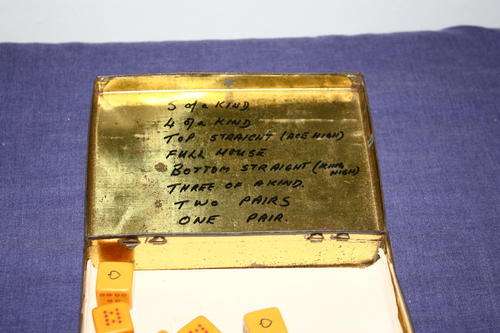 5 of a KIND
4 of a KIND
TOP STRAIGHT (ACE HIGH)
FULL HOUSE
BOTTOM STRAIGHT (KING HIGH)
THREE OF A KIND.
TWO PAIRS
ONE PAIR.